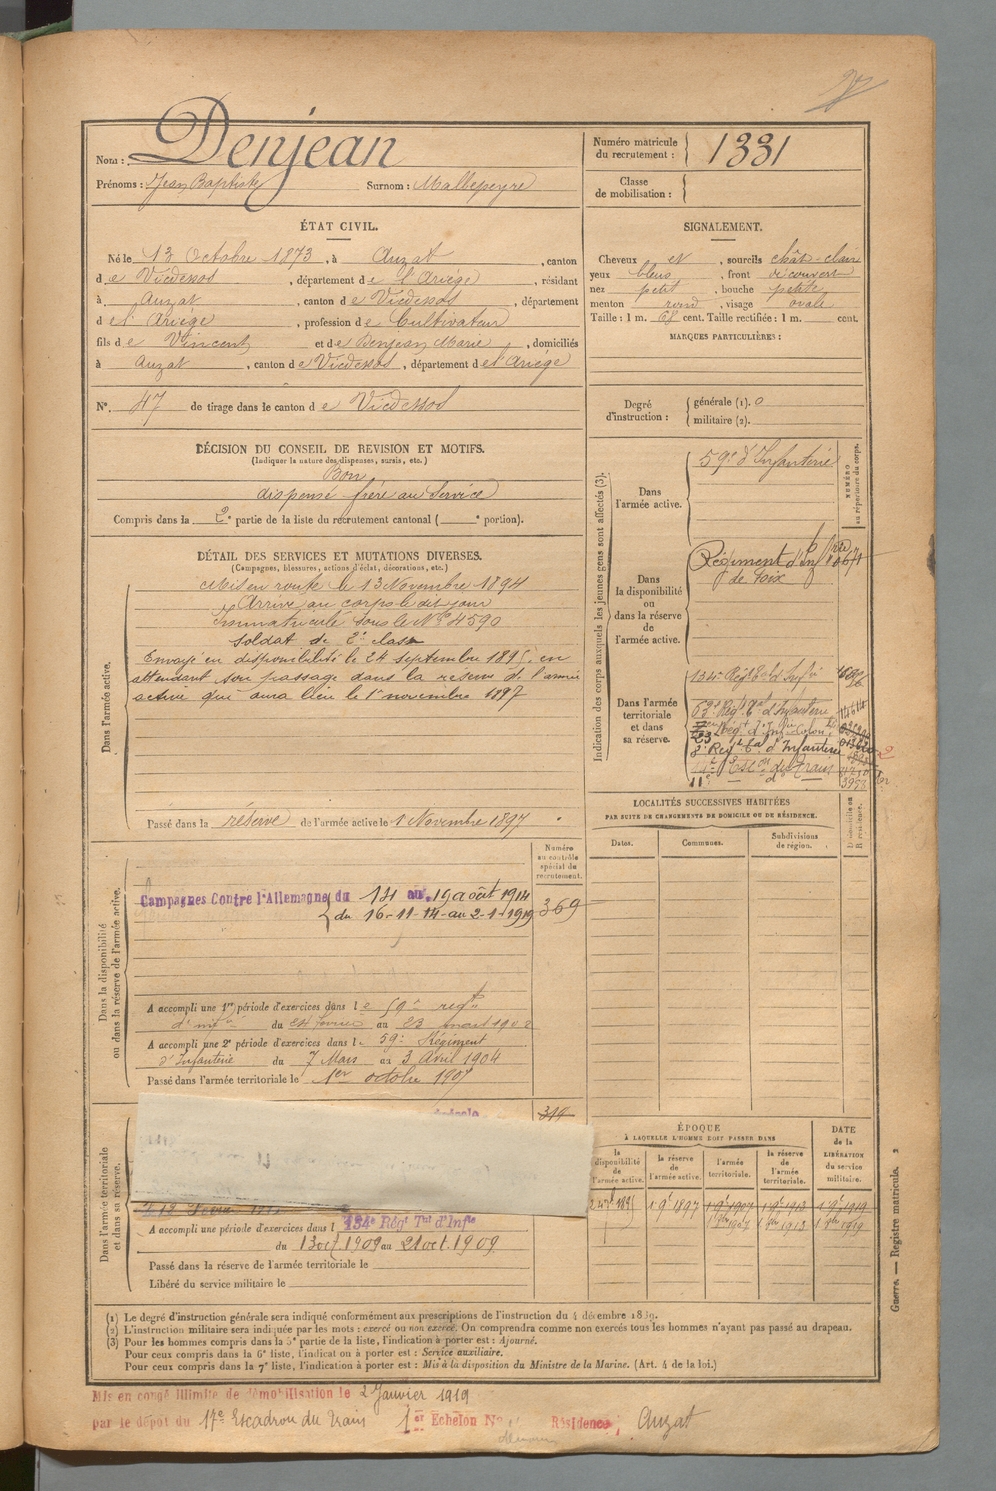 Nom : Denjean
Prénoms : Jean Baptiste Surnom : Malbepeyre
Numéro matricule du recrutement : 1331
Classe de mobilisation :
ÉTAT CIVIL.
Né le 13 Octobre 1873, à Auzat, canton
de Vicdessos, département de l'Ariège, résidant
à Auzat, canton de Vicdessos, département
de l'Ariège, profession de Cultivateur
fils de Vincent et de Denjean Marie, domiciliés
à Auzat, canton de Vicdessos, département de l'Ariège
N° 47 de tirage dans le canton de Vicdessos
SIGNALEMENT.
Cheveux et, sourcils chât-clair
yeux bleus, front découvert
nez petit, bouche petite
menton rond, visage ovale
Taille : 1 m. 68 cent. Taille rectifiée : 1 m. cent.
MARQUES PARTICULIÈRES :
Degré d'instruction : générale (1). 0
militaire (2).
DÉCISION DU CONSEIL DE REVISION ET MOTIFS.
(Indiquer la nature des dispenses, sursis, etc.)
Bon
dispensé frère au Service
Compris dans la 2e partie de la liste du recrutement cantonal ( e portion).
DÉTAIL DES SERVICES ET MUTATIONS DIVERSES.
(Campagnes, blessures, actions d'éclat, décorations, etc.)
Dans l'armée active.
Mis en route le 13 Novembre 1894
Arrivé au corps le dit jour
Immatriculé sous le No 4590
Soldat de 2e classe
Envoyé en disponibilité le 24 septembre 1895, en
attendant son passage dans la réserve de l'armée
active qui aura lieu le 1er novembre 1897
Passé dans la réserve de l'armée active le 1 Novembre 1897
Indication des corps auxquels les jeunes gens sont affectés (3).
NUMÉRO au répertoire du corps.
Dans l'armée active.
59e d'Infanterie
Dans la disponibilité ou dans la réserve de l'armée active.
Régiment d'Inf
de Foix
Dans l'armée territoriale et dans sa réserve.
134e Régt Tal d'Infie
53e Régt Tal d'Infanterie
8e Regt Tal d'Infanterie
Escon du Train
LOCALITÉS SUCCESSIVES HABITÉES
PAR SUITE DE CHANGEMENTS DE DOMICILE OU DE RÉSIDENCE.
Dates. Communes. Subdivisions de région. Domicile ou Résidence.
Dans la disponibilité ou dans la réserve de l'armée active.
Numéro au contrôle spécial du recrutement.
Campagnes Contre l'Allemagne du 14 au 19 août 1914
du 16-11-14-au 2-1-1919
369
A accompli une 1re période d'exercices dans le 59e regt
d'infie du 24 février au 23 mars 1902
A accompli une 2e période d'exercices dans le 59e Régiment
d'Infanterie du 7 Mars au 3 Avril 1904
Passé dans l'armée territoriale le 1er octobre 1907
Dans l'armée territoriale et dans sa réserve.
319
A accompli une période d'exercices dans l 134e Régt Tal d'Infie
du 13 oct. 1909 au 21 oct. 1909.
Passé dans la réserve de l'armée territoriale le
Libéré du service militaire le
ÉPOQUE
À LAQUELLE L'HOMME DOIT PASSER DANS
la disponibilité de l'armée active.
la réserve de l'armée active.
l'armée territoriale.
la réserve de l'armée territoriale.
DATE de la LIBÉRATION du service militaire.
1 9e 1897 1 9e 1907 1 9e 1913 1 9e 1919
1 8bre 1907 1 8bre 1913 1 8bre 1919
(1) Le degré d'instruction générale sera indiqué conformément aux prescriptions de l'instruction du 4 décembre 1889.
(2) L'instruction militaire sera indiquée par les mots : exercé ou non exercé. On comprendra comme non exercés tous les hommes n'ayant pas passé au drapeau.
(3) Pour les hommes compris dans la 5e partie de la liste, l'indication à porter est : Ajourné.
Pour ceux compris dans la 6e liste, l'indication à porter est : Service auxiliaire.
Pour ceux compris dans la 7e liste, l'indication à porter est : Mis à la disposition du Ministre de la Marine. (Art. 4 de la loi.)
Guerre. — Registre matricule. 2
Mis en congé illimité de démobilisation le 2 Janvier 1919
par le dépôt du 17e Escadron du Train 1er Echelon No Résidence ; Auzat